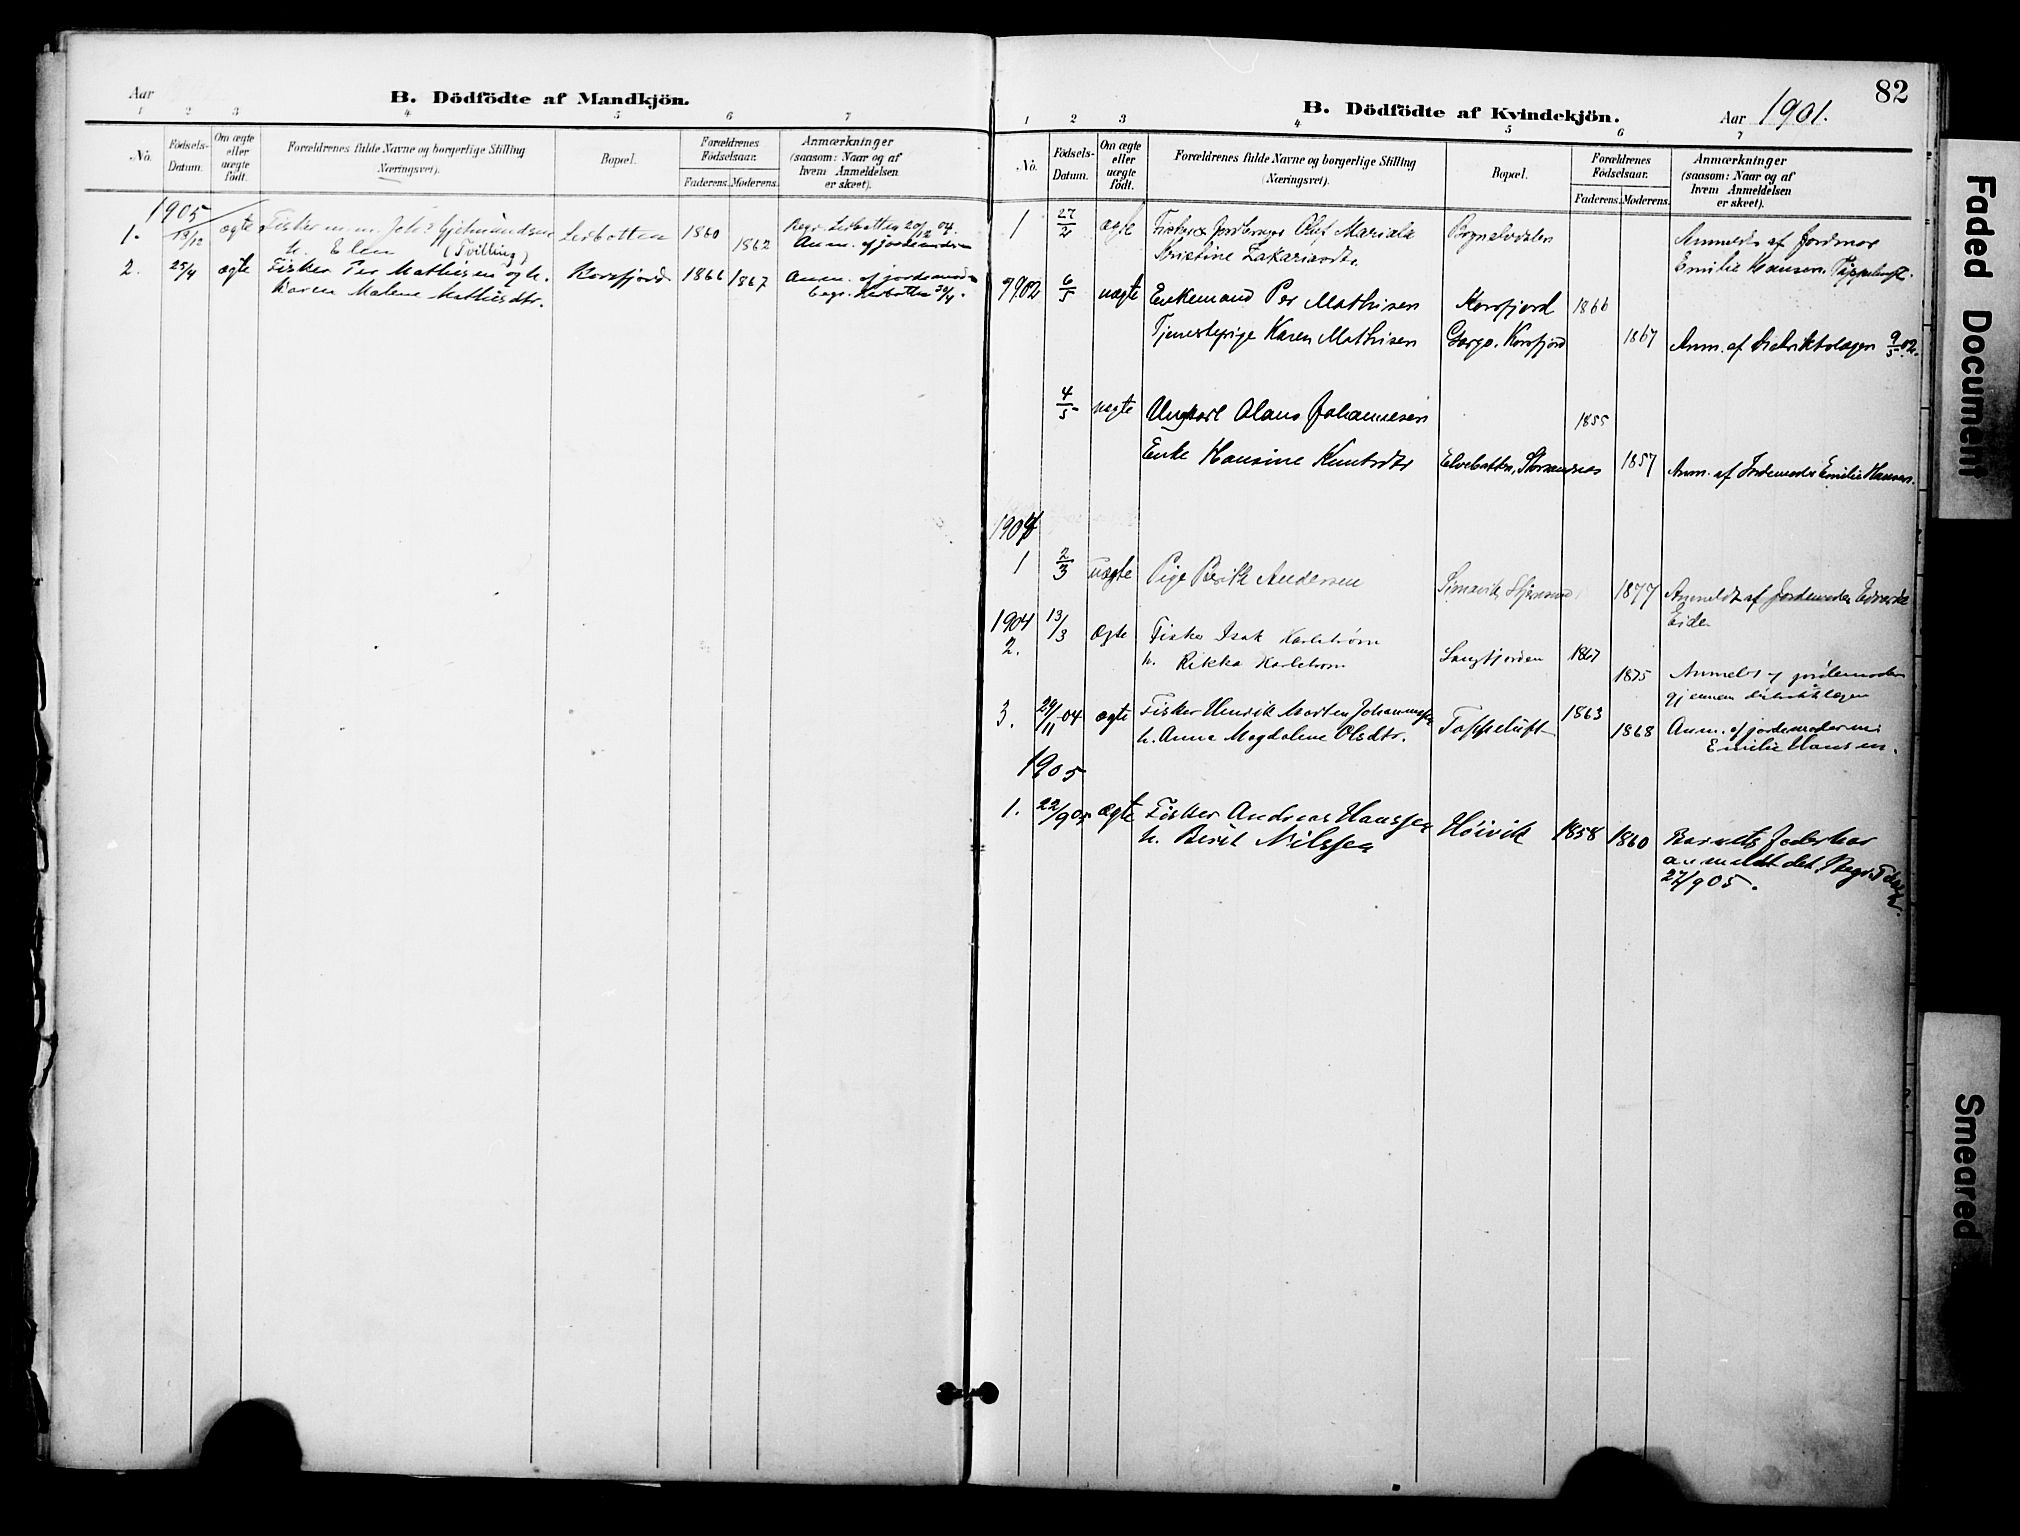 Aar
B. Dödfödte af Mandkjön.
1 2 3 4 5 6 7
No.
Födsels-
Datum.
Om ægte
eller
uægte
födt.
Forældrenes fulde Navne og borgerlige Stilling
(Næringsvei).
Bopæl.
Forældrenes
Födselsaar.
Faderens. Moderens.
Anmærkninger
(saasom: Naar og af
hvem Anmeldelsen
er skeet).
1905
1. 19/12 ægte Fisker m.m. Joh.s
h. Elen (Tvilling)
Leirbotten 1860 1862
Begr. Leirbotten 20/12 04.
Anm. af jordemoderen
2. 25/4 ægte Fisker Per Mathisen og h.
Karen Malene Mathisdtr.
Korsfjord 1866 1867
Anm. af jordemoderen
begr. Leirbotten 30/4.
82
B. Dödfödte af Kvindekjön.
Aar 1901.
1 2 3 4 5 6 7
No.
Födsels-
Datum.
Om ægte
eller
uægte
födt.
Forældrenes fulde Navne og borgerlige Stilling
(Næringsvei).
Bopæl.
Forældrenes
Födselsaar.
Faderens. Moderens.
Anmærkninger
(saasom: Naar og af
hvem Anmeldelsen
er skeet).
1 27/2 ægte Oluf
Kristine Zakariasdtr.
Anmeldt af Jordmor
Emilie Hansen. Tappeluft.
1902 6/5 uægte Enkemand Per Mathisen Korsfjord 1866
Tjenestepige Karen Mathisen Gorgo. Korsfjord 1867 Anm. af Distriktslægen 9/5 02.
4/5 uægte Ungkarl Olaus Johannesen 1855
Enke Hansine Knutsdtr Elvebakken, Storsandnes 1857 Anm. af Jordemoder Emilie Hansen.
1904
1 2/3 uægte Pige Berit Andersen Simavik, Stjernsund 1877 Anmeldt af Jordemoder
Eide
1904
2. 13/3 Ægte Fisker Isak Karlstrøm
h. Rikka Karlstrøm
Langfjorden 1867 1875
Anmeldt af jordemoder
gjennem distriktslægen
3. 29/11 04 ægte Fisker Henrik Morten Johannessen
h. Anna Magdalene Olsdtr.
Tappeluft 1863 1868
Anm. af jordemoderen
Emilie Hansen.
1905
1. 22/9 05 ægte Fisker Andreas Hanssen
h. Berit Nilssen
Høivik 1858 1860
Barnets Fader har
anmeldt det. Begr.
27/9 05.
Faded Document
Smeared